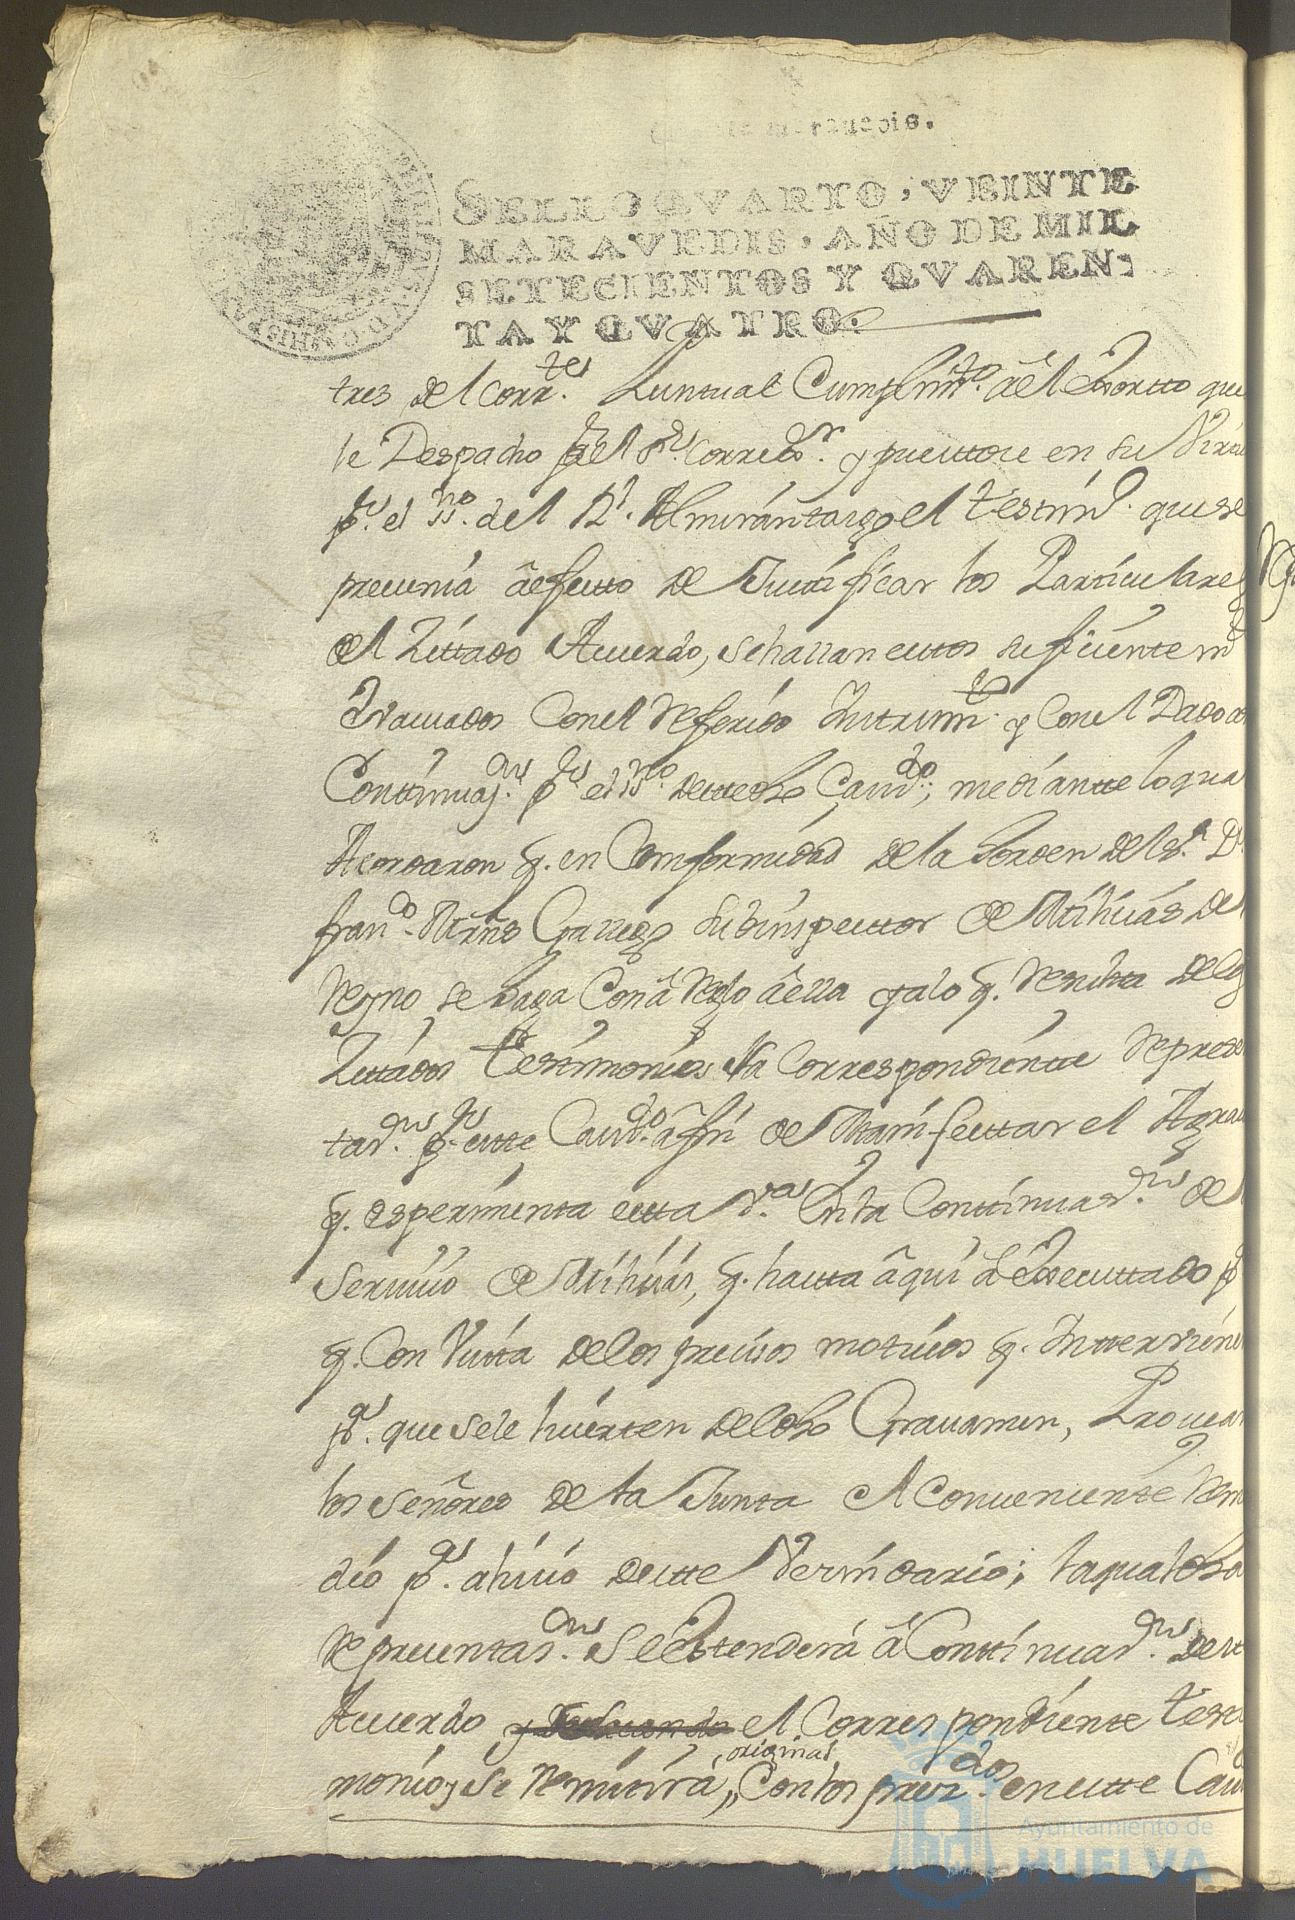 SELLO QVARTO, VEINTE
MARAVEDIS, AÑO DE MIL
SETECIENTOS Y QVAREN-
TA Y QVATRO.
tres del corr.tes Puntual Cumplim.to a el Exortto que
le Despacho el s.r Corre.r y puestose en su Virtu
p.r el ss.no del R.l Almirantazgo el testim.o que se
precisaua a efecto de Justificar los Particulares
del Zittado Acuerdo, se hallan estos suficientem.te
Evacuados Con el referido Instrum.to y Con el Dado a
Continuaz.on p.r el ss.no de este dho Caud.o; mediante lo qua
Acordaron q. en Comformidad de la Horden del s.r D.n
fran.co Mrñs Gallego Subinspecttor de Milisias de
Reyno se haga Con a Reglo a ella y a lo q. Resulta de los
Zittados testimonios la Correspondiente Represen
taz.on p.r este Caud.o a fin de Manifesttar el Agrau
q. esperimenta esta v.a en la Continuaz.on de
Seruiuio de Milisias, q. hasta aqui a Executtado p
q. Con Vista de los precisos motiuos q. Interviene
p.a que se le huerten del dho Grauamen, Prouean
los Señores de la Junta el Conueniente Reme
dio p.a aliuio de este Vezindario; la qual dha
Representaz.on Se Estenderá a Continuaz.on de este
Acuerdo el Correspondiente testi
original
monio, y Se Remitirá, Con los prez.dos en este Cau
Ayuntamiento de
HUELVA